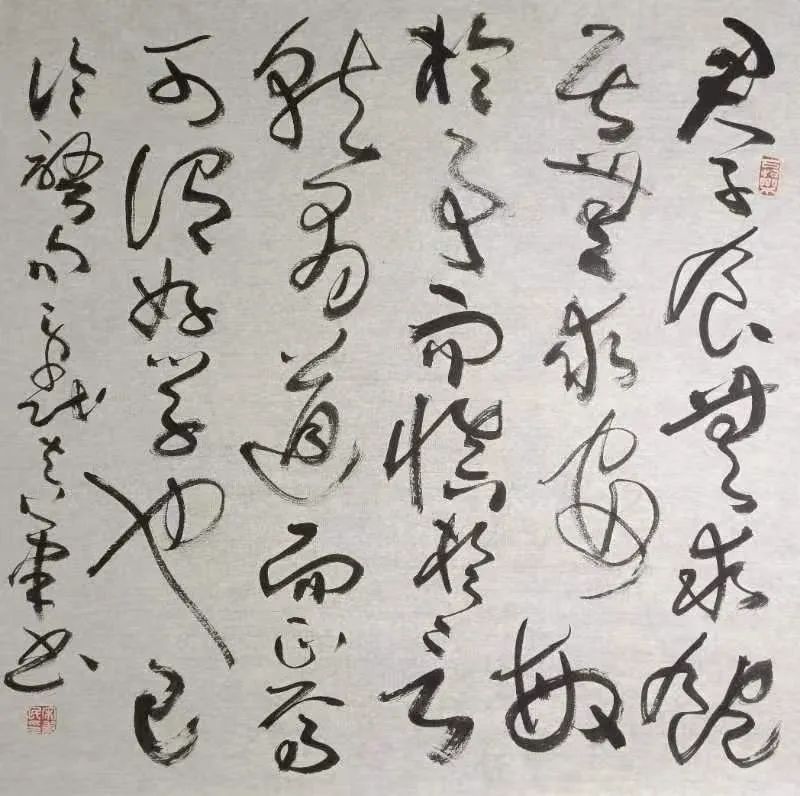 君子食無求飽
居無求安敏
於事而慎於言
就有道而正焉
可謂好学也已
論語句 書